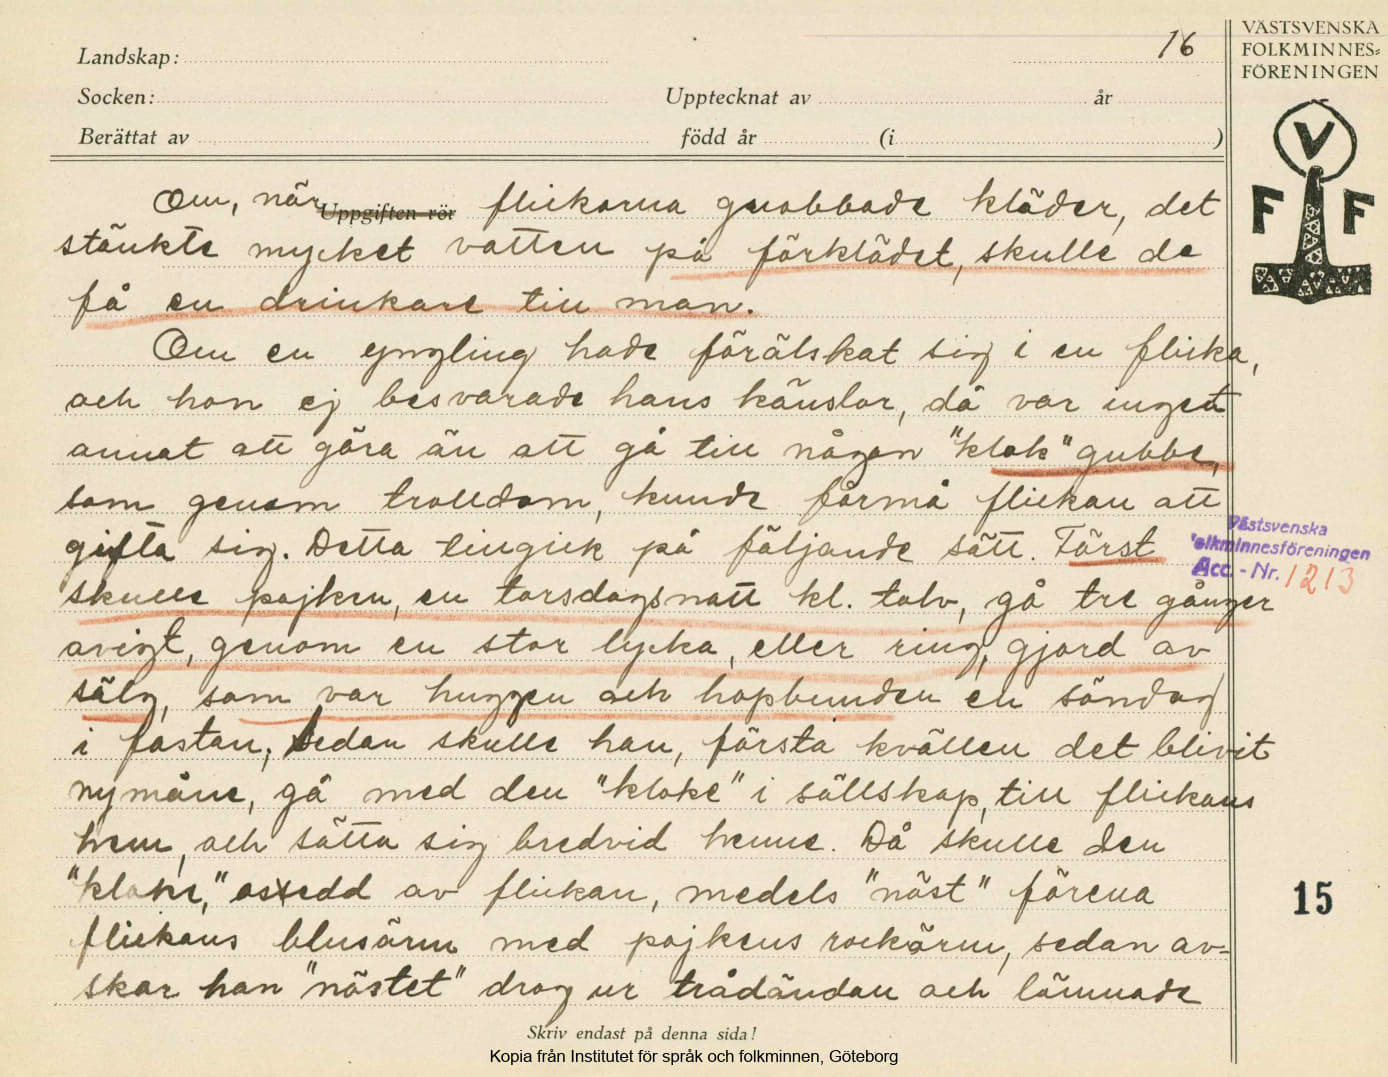 16
VÄSTSVENSKA
FOLKMINNES-
FÖRENINGEN
Landskap:
Socken:
Upptecknat av
år
Berättat av
född år
(i
)
V
F F
Om, när Uppgiften rör flickorna gnobbade kläder, det
stänkte mycket vatten på förklädet, skulle de
få en drinkare till man.
Om en yngling hade förälskat sig i en flicka,
och hon ej besvarade hans känslor, då var inget
annat att göra än att gå till någon "klok" gubbe,
som genom trolldom, kunde förmå flickan att
gifta sig. Detta tingick på följande sätt. Först
skulle pojken, en torsdagsnatt kl. tolv, gå tre gånger
avigt, genom en stor lycka, eller ring, gjord av
sälg, som var huggen och hopbunden en söndag
i fastan, sedan skulle han, första kvällen det blivit
nymåne, gå med den "kloke" i sällskap, till flickans
hem, och sätta sig bredvid henne. Då skulle den
"kloke," osedd av flickan, medels "nöst" förena
flickans blusärm med pojkens rockärm, sedan av=
skar han "nöstet" drog ur trådändan och lämnade
Västsvenska
Folkminnesföreningen
Acc. - Nr. 1213
15
Skriv endast på denna sida!
Kopia från Institutet för språk och folkminnen, Göteborg